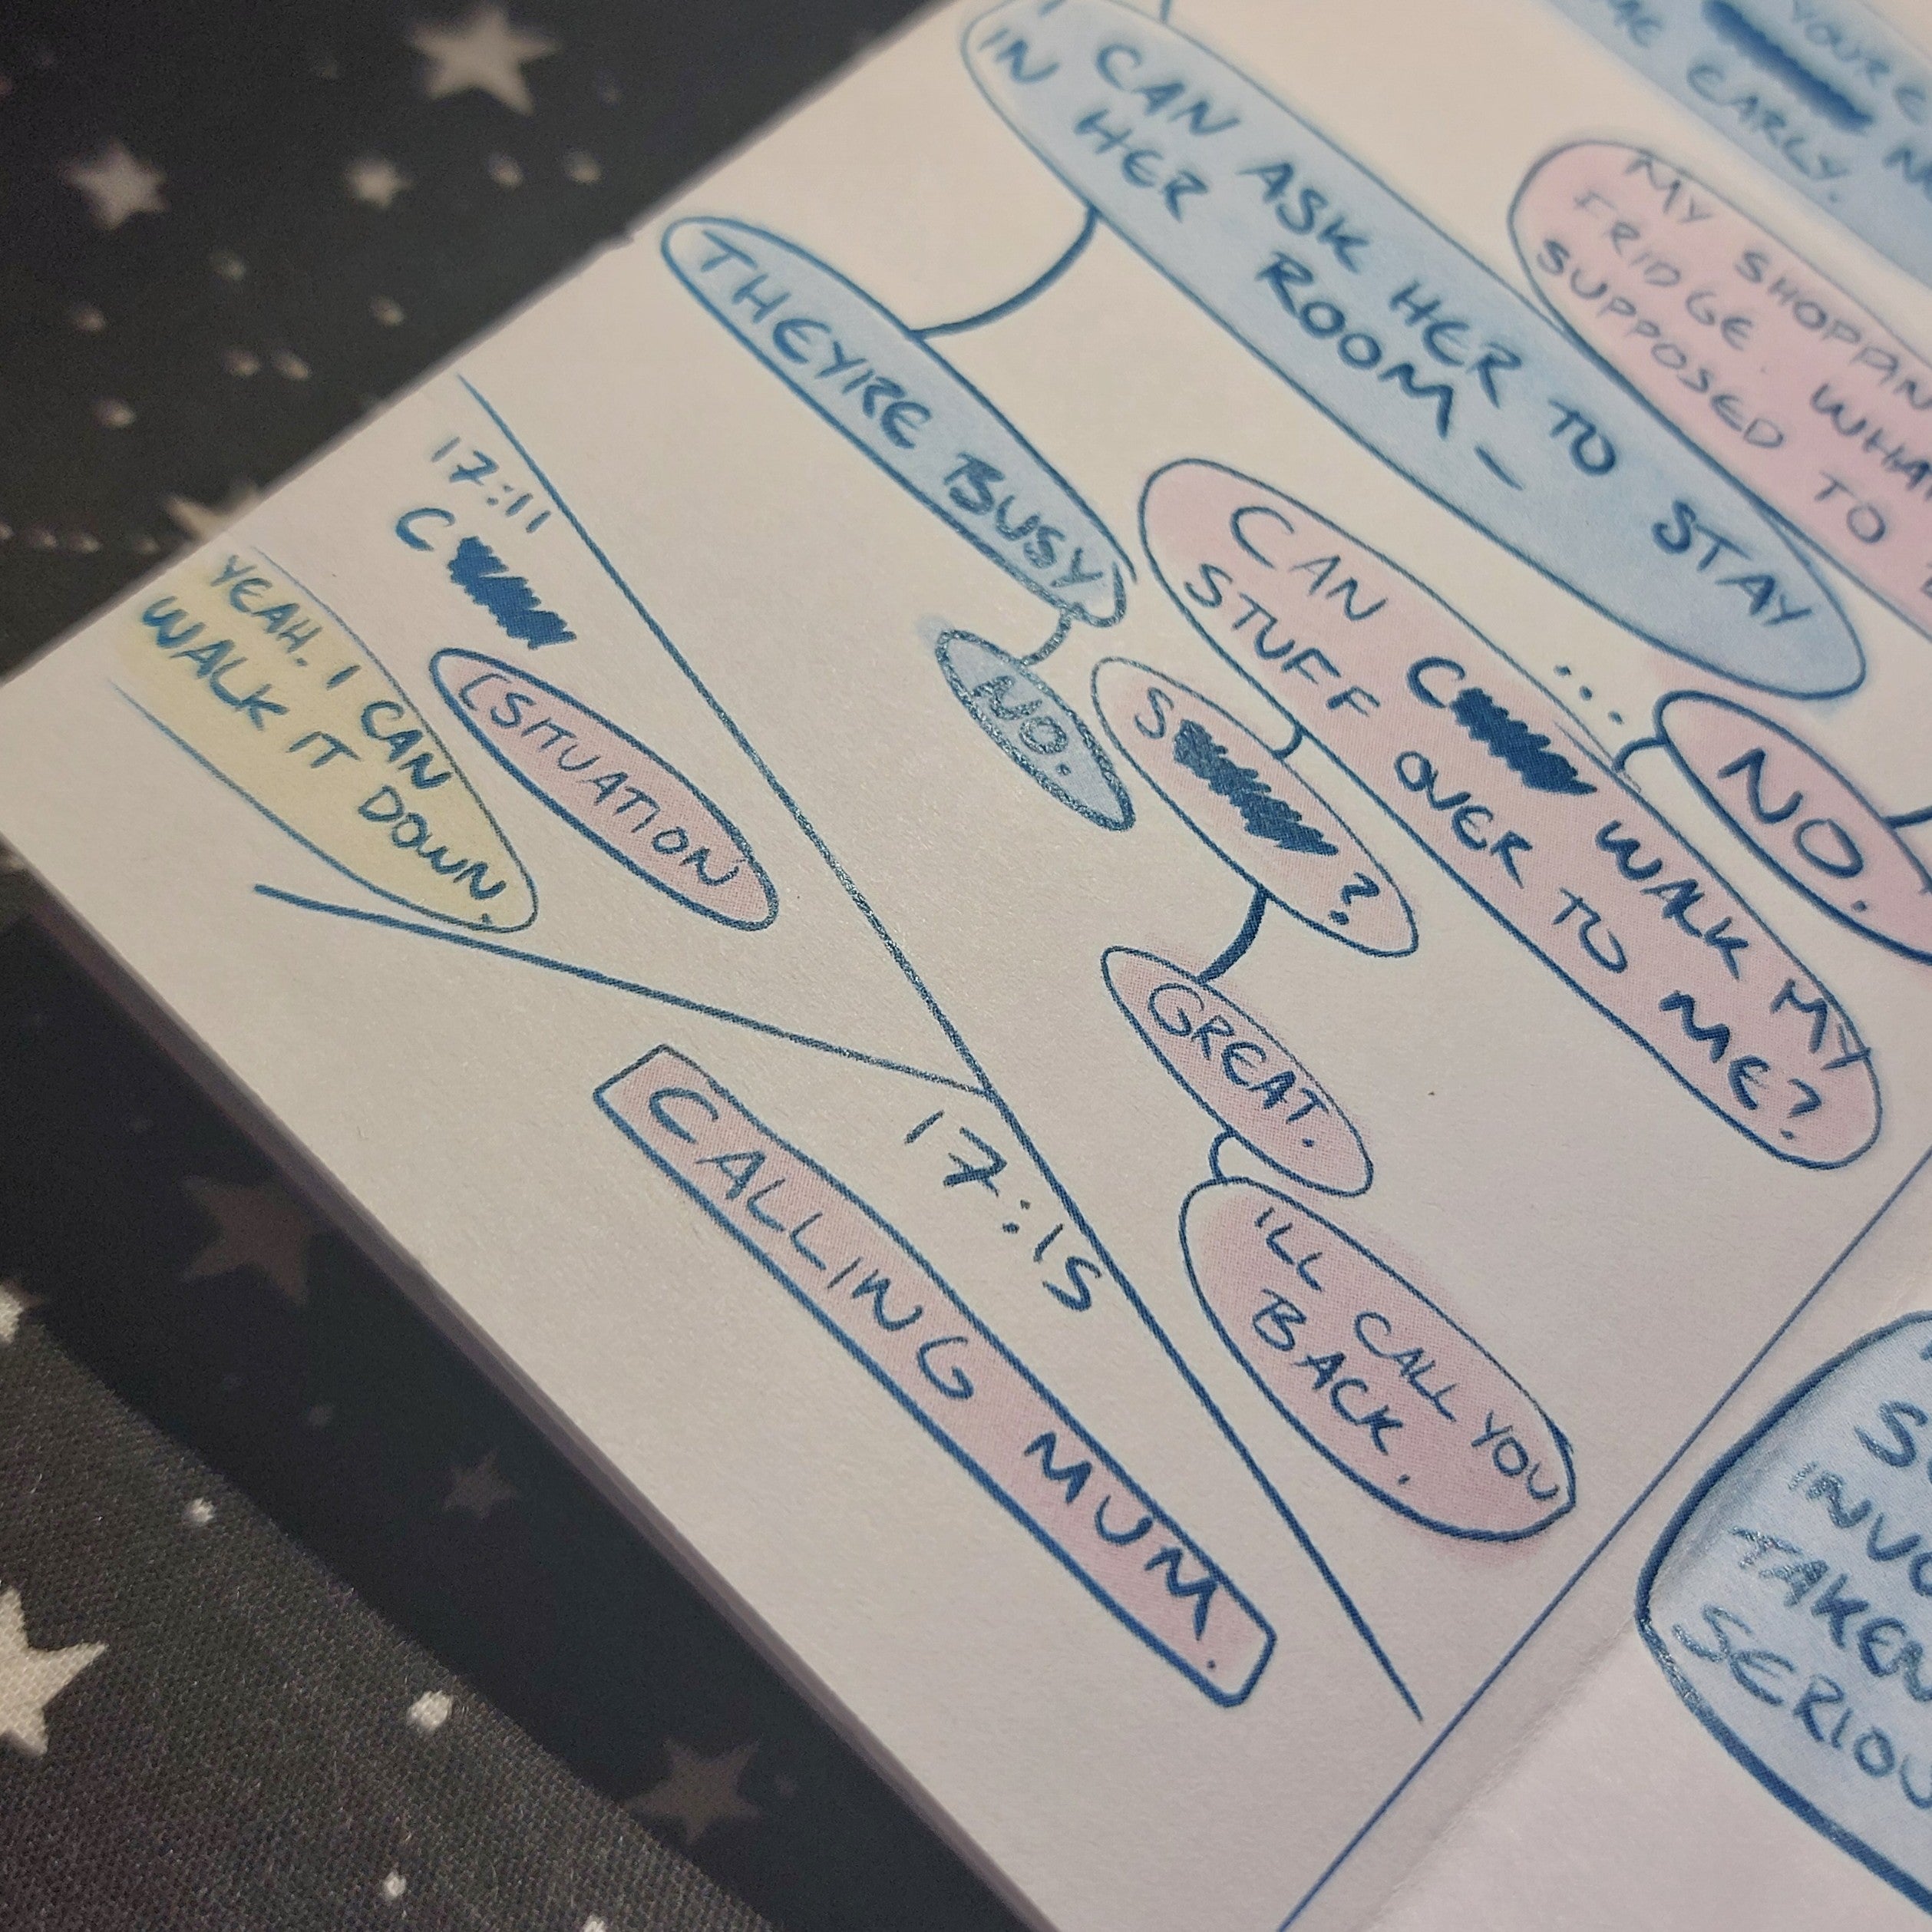 YOUR
EARLY.
MY SHOPPIN
FRIDGE. WHA
SUPPOSED TO
I CAN ASK HER TO STAY
IN HER ROOM -
...
NO.
THEY'RE BUSY
NO.
CAN C WALK MY
STUFF OVER TO ME?
S ?
GREAT.
I'LL CALL YOU
BACK.
17:11
C
(SITUATION
YEAH. I CAN
WALK IT DOWN.
17:15
CALLING MUM.
INVO
TAKEN
SERIOU